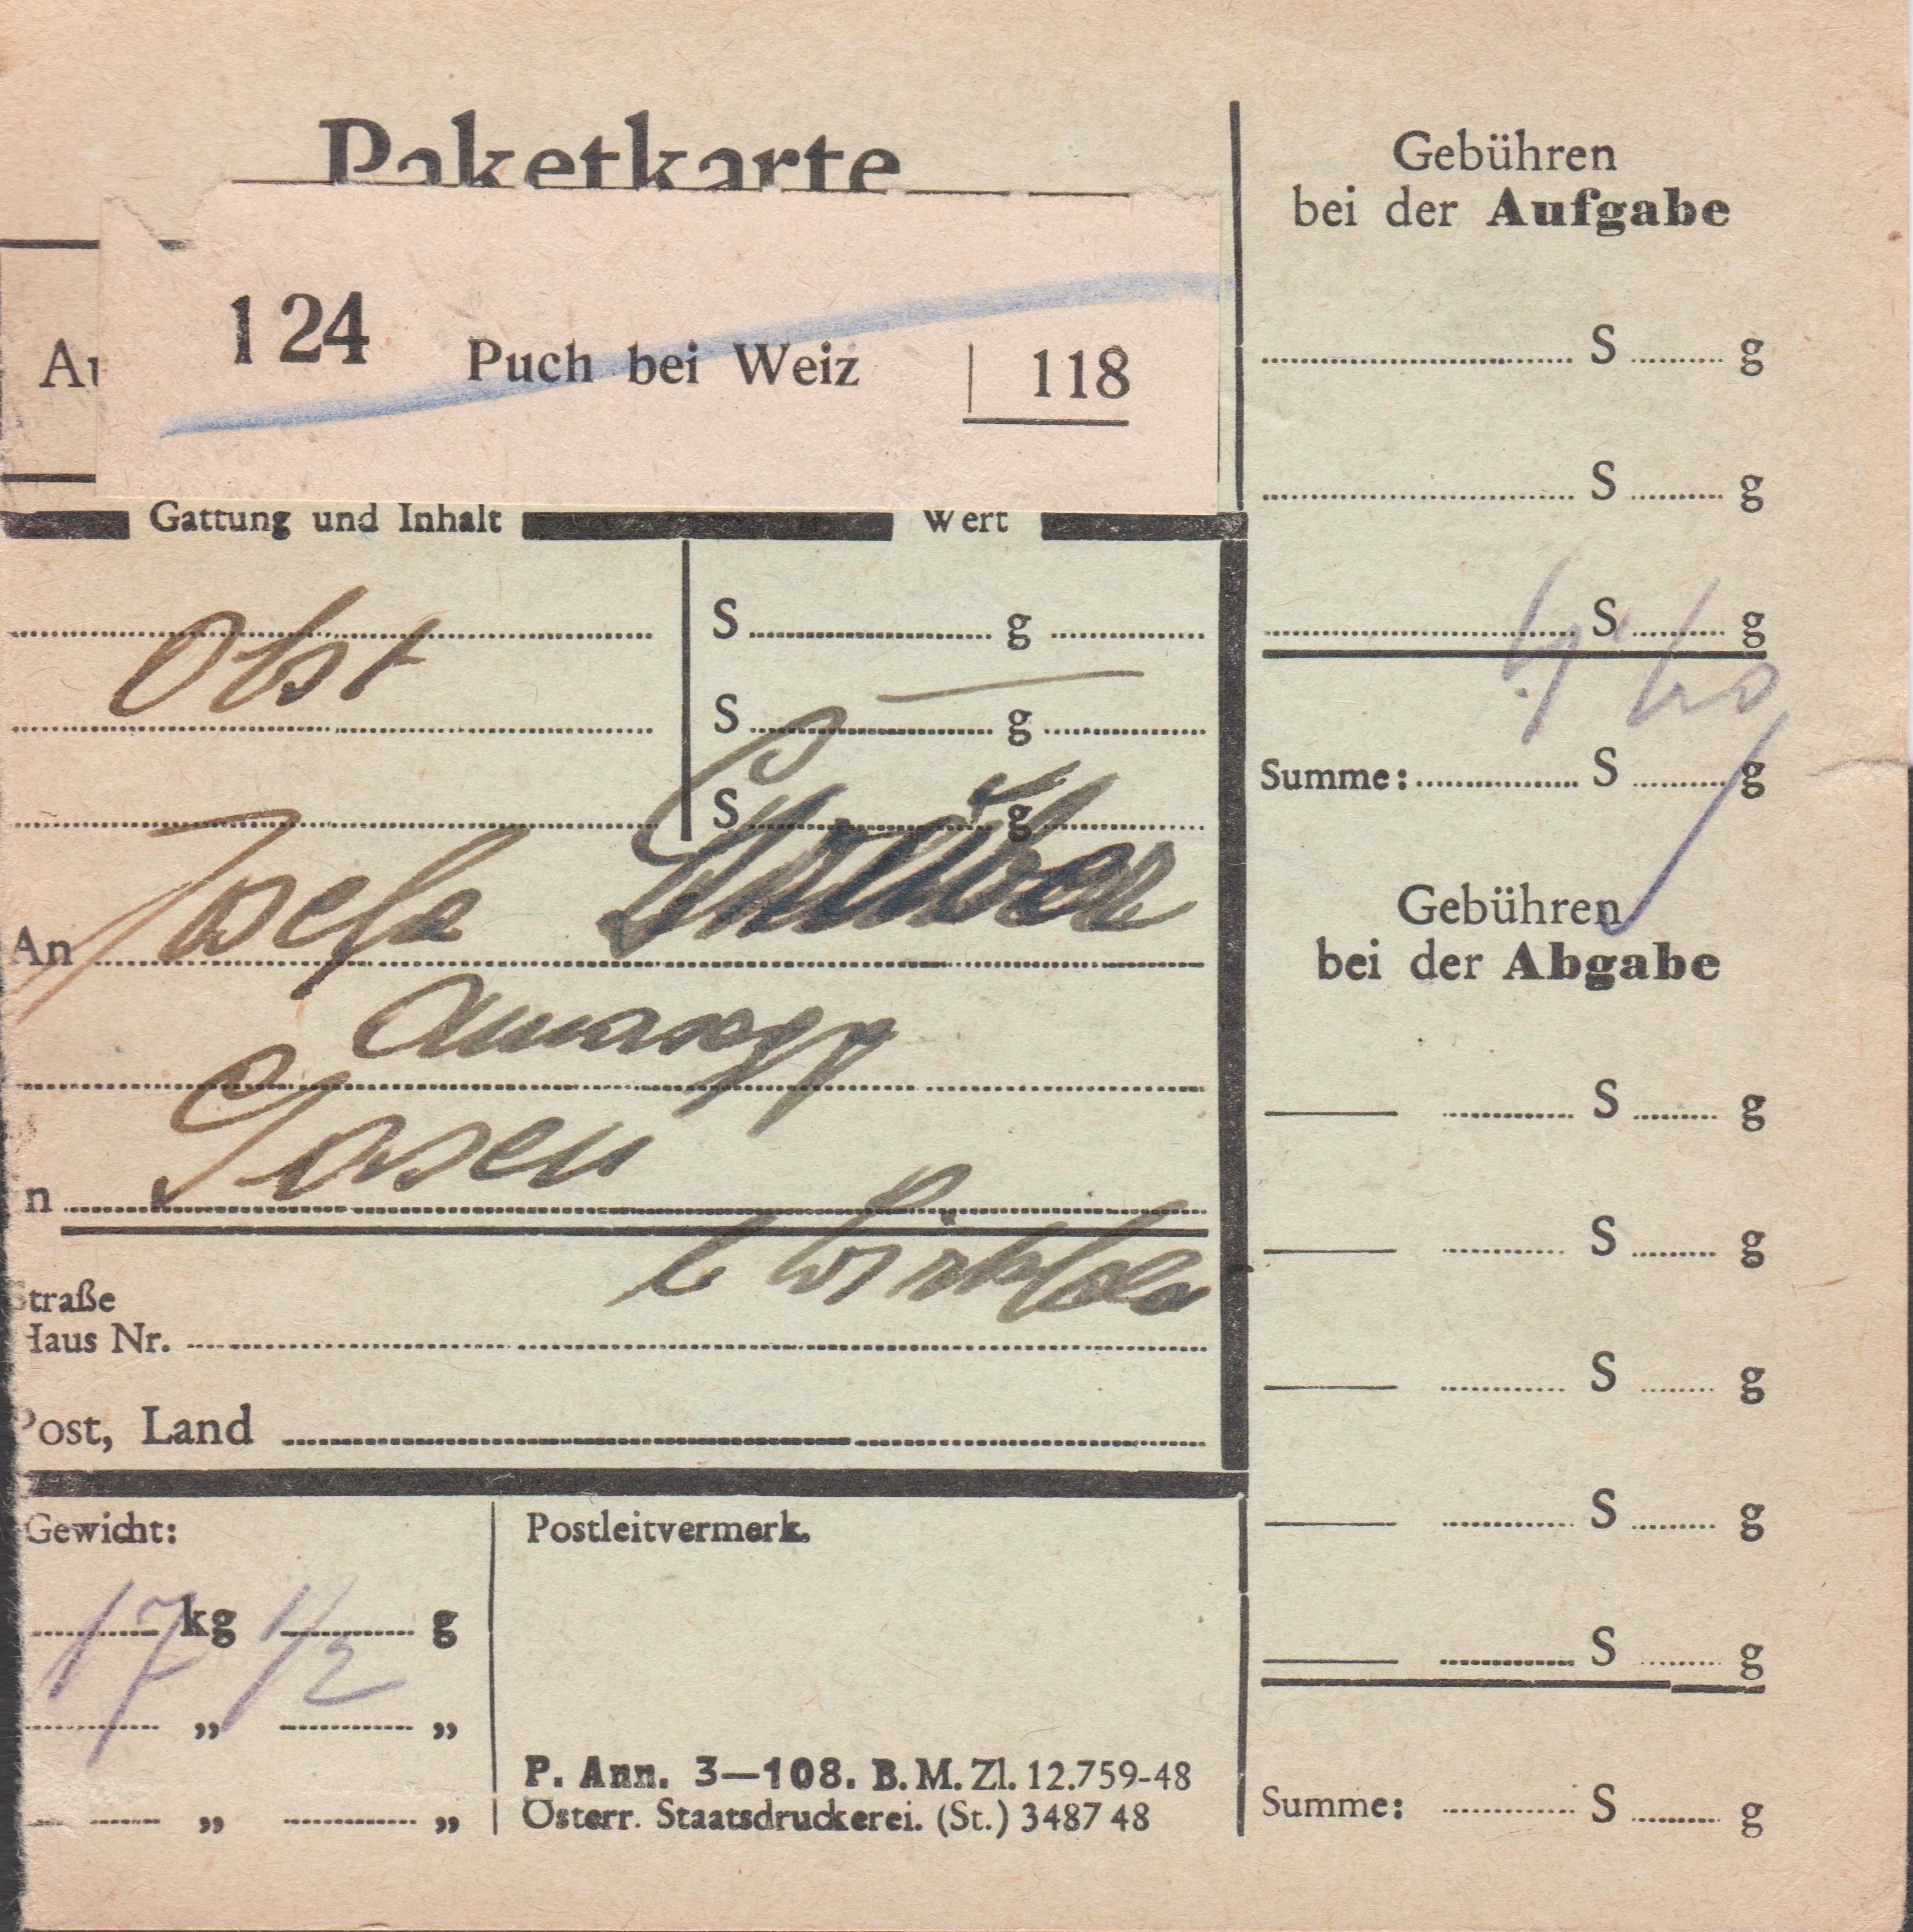 Paketkarte
Gebühren
bei der Aufgabe
124 Puch bei Weiz 118
S g
S g
Gattung und Inhalt Wert
Obst
S g
S g
S g
S g
4 40
Summe: S g
An Josefa
Gebühren
bei der Abgabe
Posen
S g
S g
Straße
Haus Nr.
S g
Post, Land
Gewicht: Postleitvermerk.
S g
17 kg 1/2 g
S g
„ „
P. Ann. 3—108. B. M. Zl. 12.759-48
Österr. Staatsdruckerei. (St.) 3487 48
„ „
Summe: S g